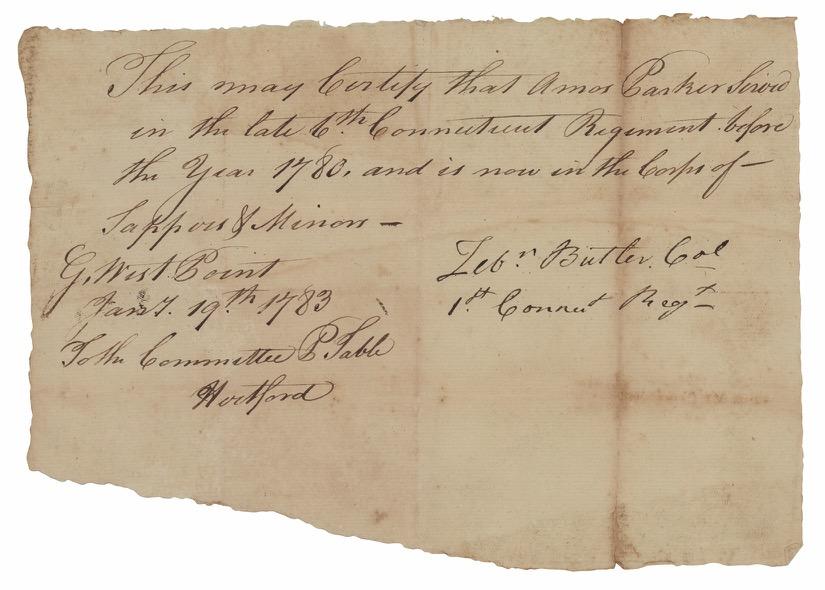 This may Certify that Amos Parker Served
in the late 6th Connecticut Regiment before
the Year 1780, and is now in the Corps of —
Sappors & Minors —
G, West Point
Jany. 19th 1783
To the Committee P Table
Hartford
Zebn Butler. Col
1st Connect Regt